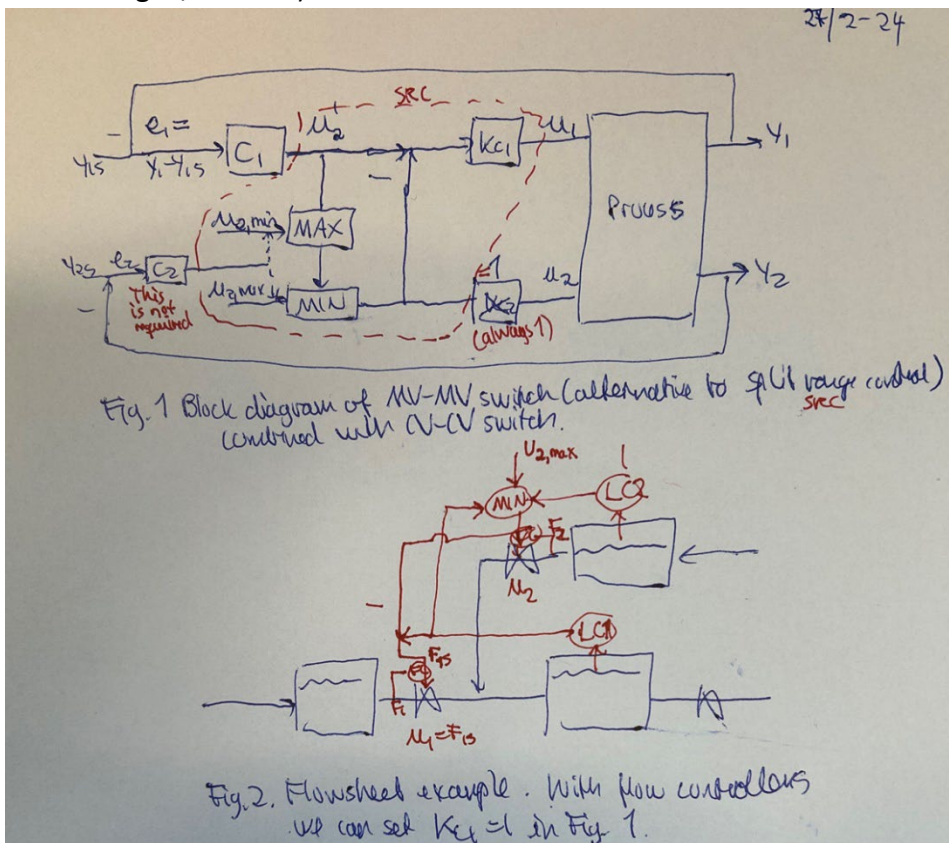 27/2-24
SRC
e₁ =
y₁-y₁s
y₁s
-
C₁
u₂
-
Kc₁
u₁
Process
y₁
u₂,min
MAX
y₂s
e₂
C₂
This
is not
required
u₂,max
MIN
=1
(always 1)
u₂
y₂
-
Fig. 1 Block diagram of MV-MV switch (alternative to split range control)
SRC
combined with CV-CV switch.
U₂,max
MIN
LC2
F₂
u₂
-
LC1
F₁s
FC
F₁
u₁ = F₁s
Fig. 2. Flowsheet example. With flow controllers
we can set Kc₁ = 1 in Fig 1.